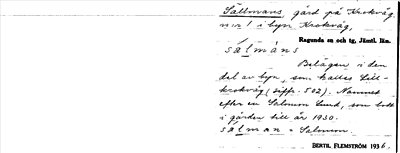 Sällmans, gård på Krokvåg
nr 1 i byn Krokvåg,
Ragunda sn och tg, Jämtl. län.
sálmàns
Belägen i den
del av byn, som kallas Lill-
krokvåg (siffr. 502). Namnet
efter en Salomon Lund, som bott
i gården till år 1930.
sálman = Salomon.
BERTIL FLEMSTRÖM 1936.